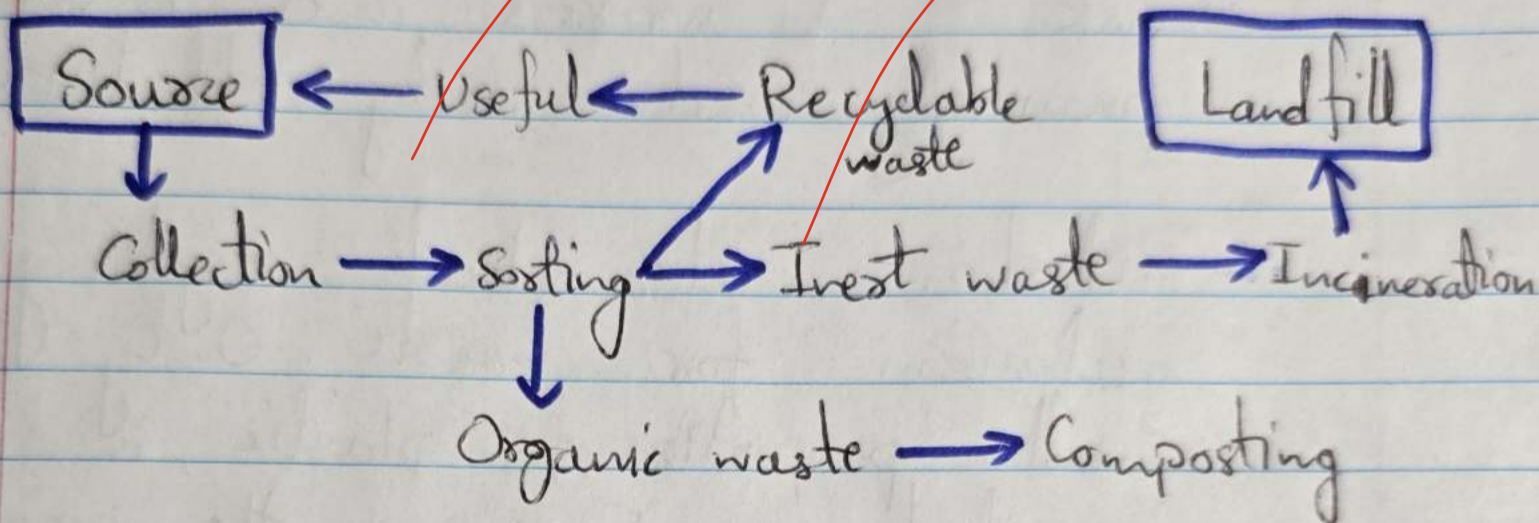 Source ← Useful ← Recyclable Landfill
waste
Collection → Sorting → Inert waste → Incineration
Organic waste → Composting